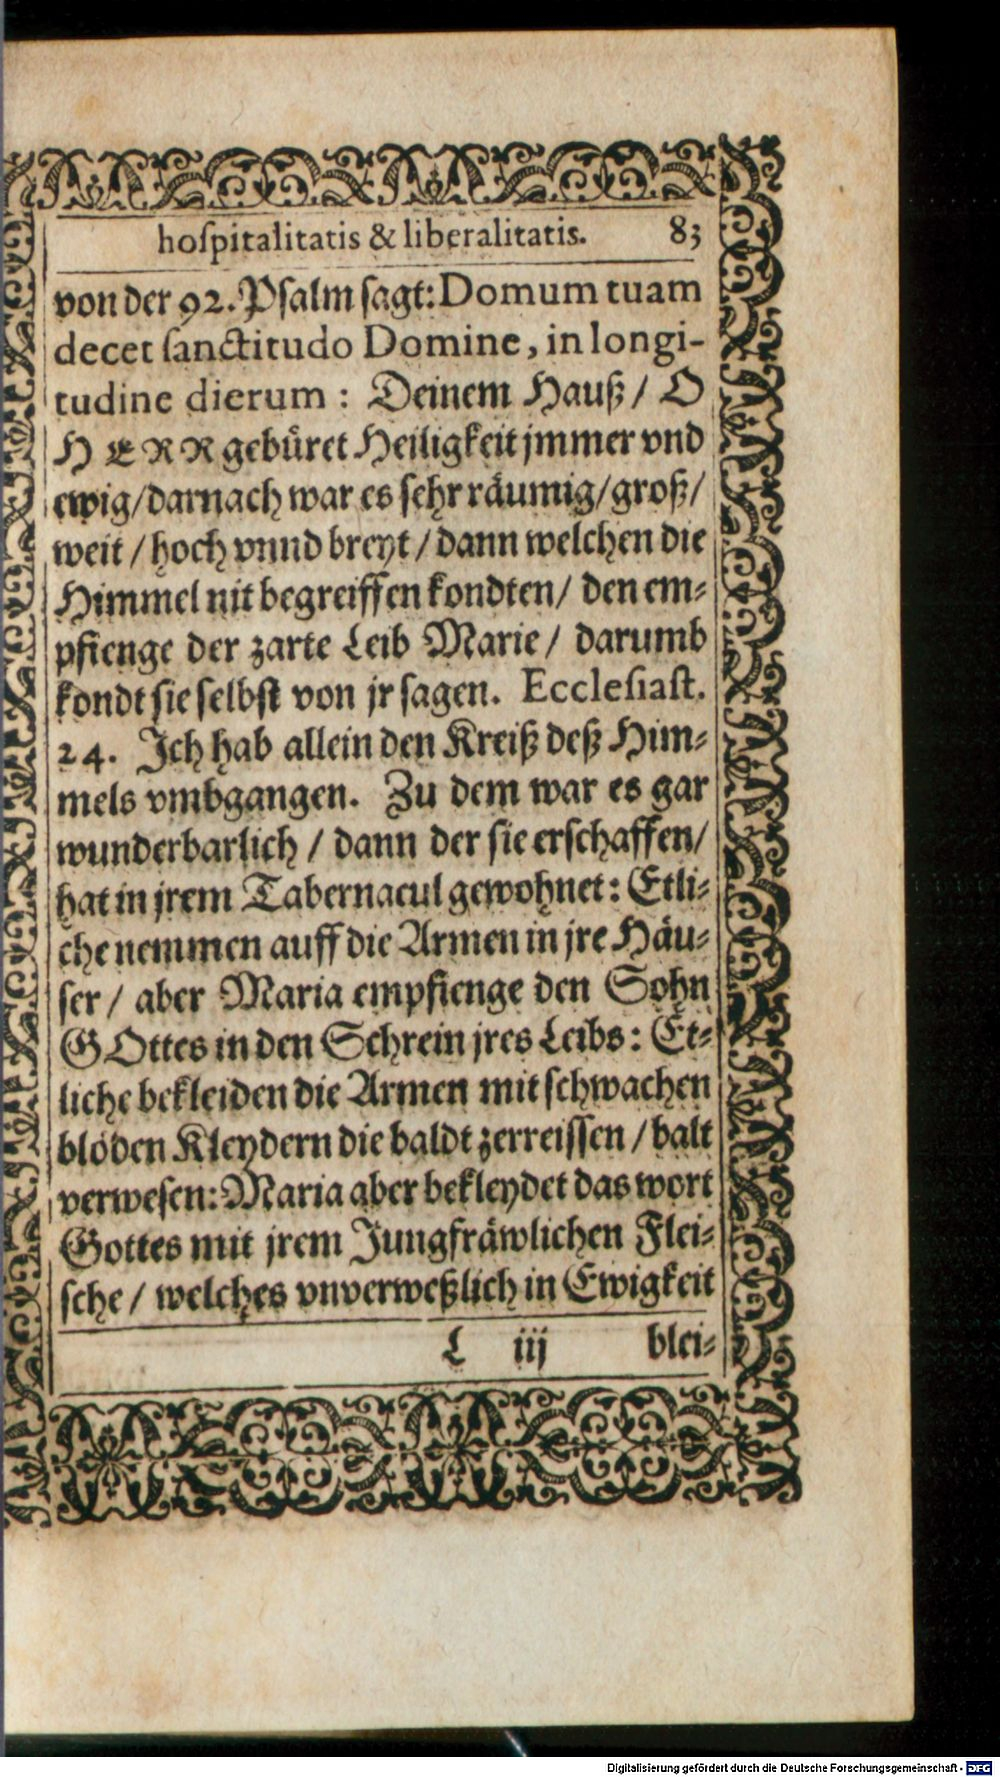 hoſpitalitatis & liberalitatis. 83
von der 92. Pſalm ſagt: Domum tuam
decet ſanctitudo Domine, in longi-
tudine dierum : Deinem Hauß / O
HERR gebüret Heiligkeit jmmer vnd
ewig / darnach war es ſehr räumig / groß /
weit / hoch vnnd breyt / dann welchen die
Himmel nit begreiffen kondten / den em⸗
pfienge der zarte Leib Marie / darumb
kondt ſie ſelbſt von jr ſagen. Eccleſiaſt.
24. Ich hab allein den Kreiß deß Him⸗
mels vmbgangen. Zu dem war es gar
wunderbarlich / dann der ſie erſchaffen /
hat in jrem Tabernacul gewohnet : Etli⸗
che nemmen auff die Armen in jre Häu⸗
ſer / aber Maria empfienge den Sohn
GOttes in den Schrein jres Leibs : Et⸗
liche bekleiden die Armen mit ſchwachen
blöden Kleydern die baldt zerreiſſen / balt
verweſen: Maria aber bekleydet das wort
Gottes mit jrem Jungfräwlichen Flei⸗
ſche / welches vnverweßlich in Ewigkeit
L iij blei⸗
Digitalisierung gefördert durch die Deutsche Forschungsgemeinschaft - DFG